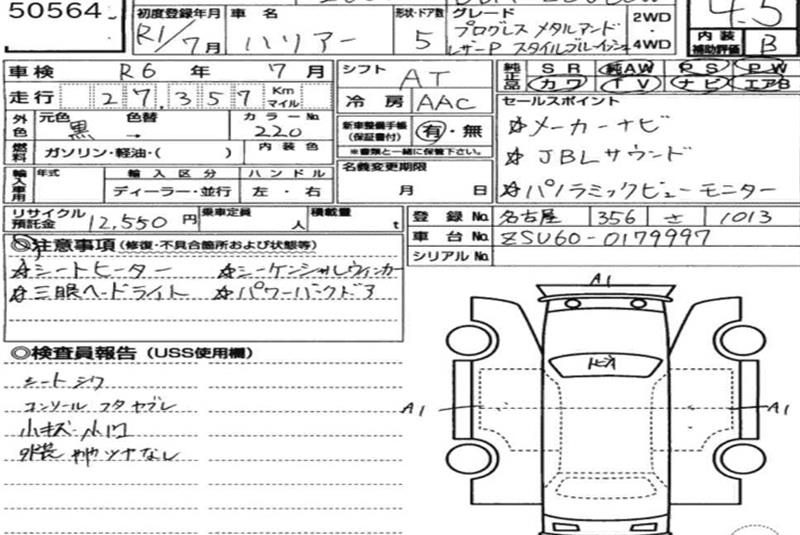 50564
初度登録年月 車名 形状・ドア数 グレード
R1/7月 ハリアー 5 プログレス メタルアンド 2WD
レザーP スタイルブルーイッシュ 4WD
4.5
内装補助評価 B
車検 R6年 7月 シフト AT
走行 27,357 Km マイル 冷房 AAC
純正品 SR 純AW PS PW
カワ TV ナビ エアB
外色 元色 黒 色替 → カラーNo. 220
新車整備手帳(保証書付) 有・無
※書類と一緒に保管下さい。
燃料 ガソリン・軽油・( ) 内装色
名義変更期限
月 日
輸入車用 年式 輸入区分 ハンドル
ディーラー・並行 左・右
セールスポイント
☆メーカーナビ
☆JBLサウンド
☆パノラミックビューモニター
リサイクル預託金 12,550円 乗車定員 人 積載量 t
登録No. 名古屋 356 さ 1013
車台No. ZSU60-0179997
シリアルNo.
◎注意事項(修復・不具合箇所および状態等)
☆シートヒーター ☆シーケンシャルウィンカー
☆三眼ヘッドライト ☆パワーバックドア
◎検査員報告(USS使用欄)
シートシワ
コンソールフタヤブレ
小キズ・小凹
外装ややツヤなし
A1
トビオ
A1
A1